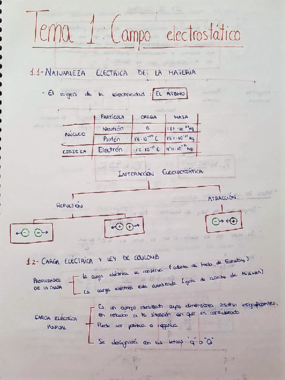 Tema 1 Campo electrostático
1.1- NATURALEZA ELÉCTRICA DE LA MATERIA
- El origen de la electricidad: EL ÁTOMO
PARTÍCULA CARGA MASA
NÚCLEO Neutrón 0
Protón
CORTEZA Electrón
INTERACCIÓN ELECTROSTÁTICA
REPULSIÓN ATRACCIÓN
1.2- CARGA ELÉCTRICA Y LEY DE COULOMB
PROPIEDADES DE LA CARGA
La carga eléctrica se conserva
La carga eléctrica está cuantizada
CARGA ELÉCTRICA PUNTUAL
Es un cuerpo cargado cuyas dimensiones resultan insignificantes,
en relación a la situación en que es considerado
Puede ser positiva o negativa
Se designan con las letras "q" o "Q"